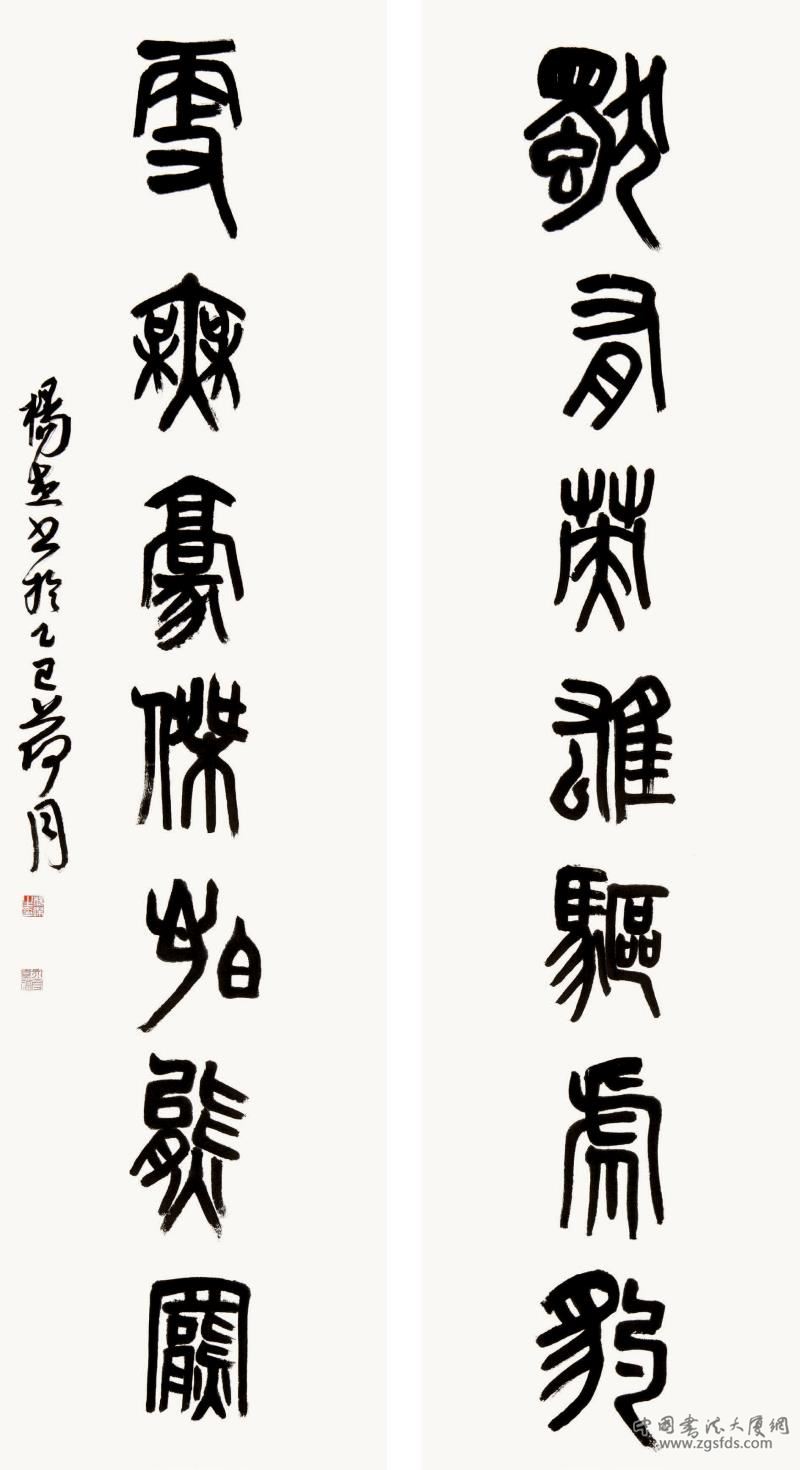 獨有英雄驅虎豹
更無豪傑怕熊羆
楊书於乙巳荷月
中国書法大厦網
www.zgsfds.com